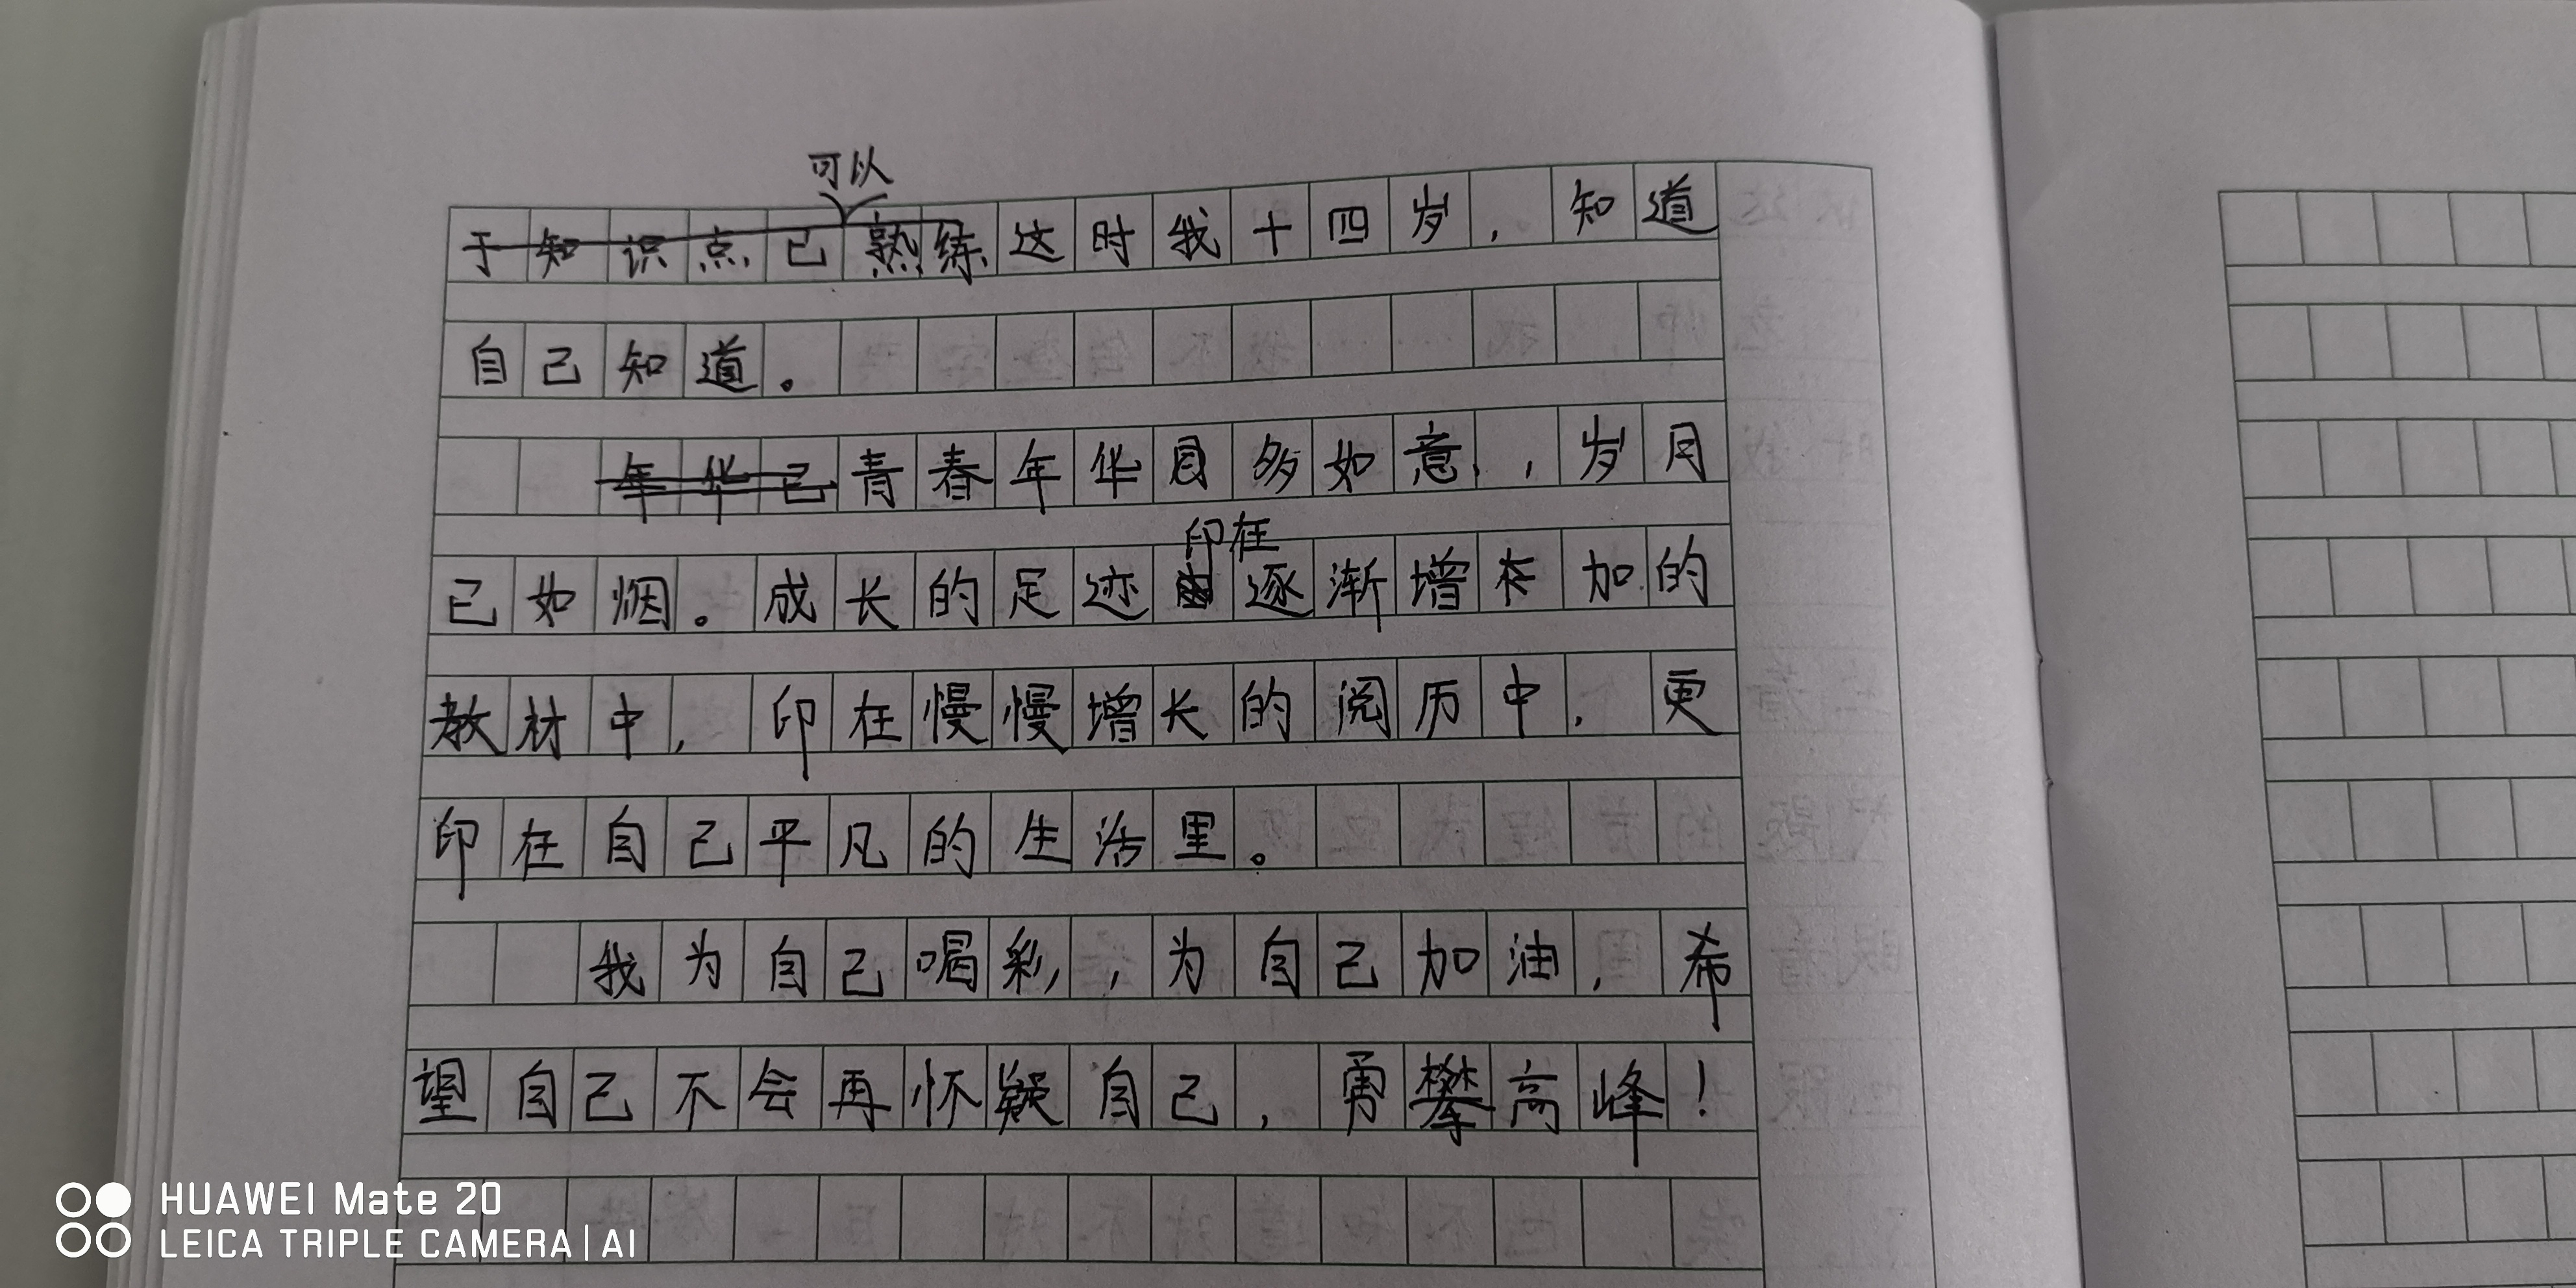 可以
于知识点已熟练这时我十四岁，知道
自己知道。
年华已青春年华多如意，岁月
印在
已如烟。成长的足迹逐渐增加的
教材中，印在慢慢增长的阅历中，更
印在自己平凡的生活里。
我为自己喝彩，为自己加油，希
望自己不会再怀疑自己，勇攀高峰！
HUAWEI Mate 20
LEICA TRIPLE CAMERA | AI